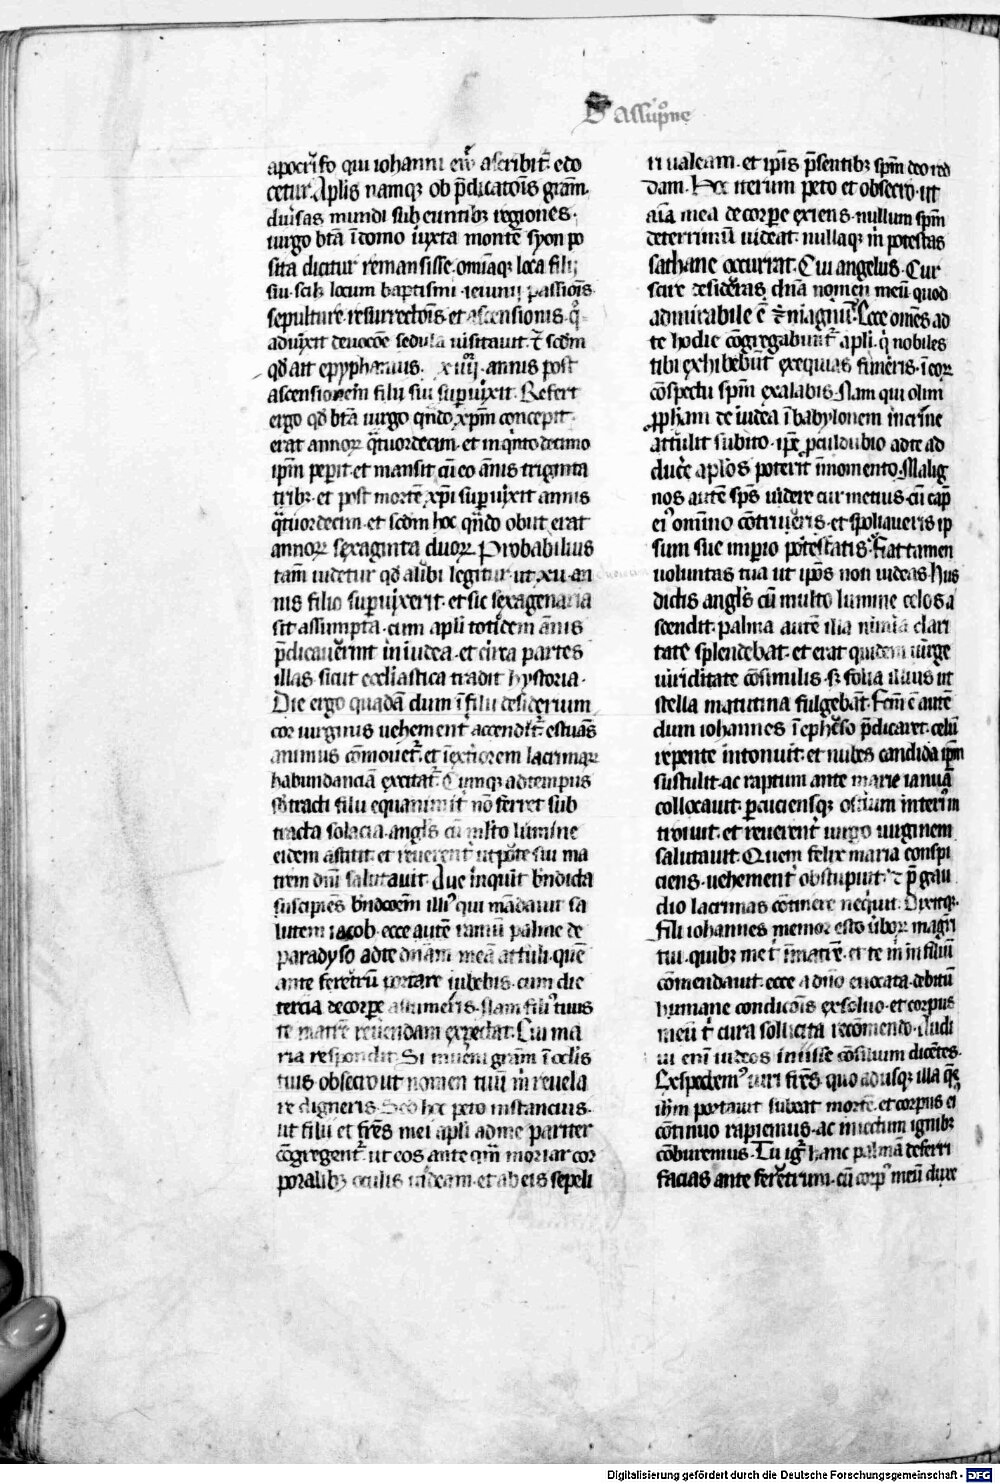 D assūpōne
apocrifo qui iohanni ew̄ ascribit᷑ edo
cetur. Aplis namqꝫ ob p̄dicatōis grām.
diu̓sas mundi sub euntibꝫ regiones.
uirgo btā ī domo iuxta montē syon po
sita dicitur remansisse. omīaqꝫ loca filij
sui. scilꝫ locum baptismi. ieiunij passiōis
sepulture. resurrectōis. et ascensionis. q̄
aduixit deuocōe sedula uisitauit. ⁊ scdm
qd ait epyphanius. xiiij. annis post
ascensionem filij sui superuixit. Refert
ergo qd btā uirgo qn̄do xpm concepit
erat annoꝝ q̄tuordecim. et in q̓nto decimo
ipm peperit. et mansit cū eo ānis triginta
tribꝫ. et post mortē xpi superuixit annis
q̄tuordecim. et scdm hoc qn̄do obiit erat
annoꝝ sexaginta duoꝝ. Probabilius
tam̄ uidetur qd alibi legitur. ut xij. an
nis filio superuixerit. et sic sexagenaria
sit assumpta. cum apli totidem ānis
p̄dicauerint in iudea. et circa partes
illas. sicut eccliastica tradit hystoria.
Die ergo quadā dum ī filij desiderium
cor uirginis uehement̓ accendit᷑. estuās
animus cōmouet᷑. et ī exteriorem lacrimaꝝ
habundanciā excitat᷑. Cumqꝫ ad tempus
sb̓tracti filij equanimit̓ nō ferret sub
tracta solacia. angl̓s cū multo lumine
eidem astitit. et reuerent̓ ut pote sui
ma
trem dn̄i salutauit. Aue inquit bn̄dicta
suscipiēs bn̄dcōem illi᷒ qui mādauit sa
lutem iacob. ecce autē ramū palme de
paradyso ad te dn̄am meā attuli. quē
ante feretrū portare iubebis. cum die
tercia de corpe assumeris. Nam fili᷒ tuus
te matrē reuerendam expectat. Cui ma
ria respondit. Si inueni grām ī oclis
tuis obsecro ut nomen tuū m̓ reuela
re digneris. Sed hoc peto instancius.
ut filij et frēs mei apli ad me pariter
cōgregent᷑. ut eos ante qm̄ moriar cor
poralibꝫ oculis uideam. et ab eis sepeli
ri ualeam. et ip̄is p̄sentibꝫ spm deo red
dam. Hoc iterum peto et obsecro. ut
aīa mea de corpe exiens. nullum spm
deterrimū uideat. nullaqꝫ m̓ potestas
sathane occurrat. Cui angelus. Cur
scire desideras dn̄a nomen meū quod
admirabile ē ⁊ magnū. Ecce omēs ad
te hodie cōgregabunt᷑ apli. q̓ nobiles
tibi exhibebūt exequias funeris. ī eoꝝ
cōspectu spm exalabis. Nam qui olim
ꝓpham de iudea ī babylonem in crine
attulit subito. ipe p̄culdubio ad te ad
ducere aplos poterit in momento. Malig
nos autē sps uidere cur metius. cū cap̄
ei᷒ omnino cōtriueris. et spoliaueris ip
sum sue imperio potestatis. Fiat tamen
uoluntas tua ut ip̄os non uideas. Hijs
dictis angl̓s cū multo lumine celos a
scendit. palma autē illa nimia clari
tate splendebat. et erat quidem uirge
uiriditate cōsimilis. sꝫ folia illius ut
stella matutina fulgebāt. Fcm̄ ē autē
dum iohannes ī epheso p̄dicaret. celū
repente intonuit. et nubes candida ipm
sustulit. ac raptum ante marie ianuā
collocauit. percuciensqꝫ ostium interi᷒ in
troiuit. et reuerent̓ uirgo uirginem
salutauit. Quem felix maria conspi
ciens. uehement̓ obstupuit. ⁊ p̄ gau
dio lacrimas cōtinere nequit. Dixitqꝫ.
Fili iohannes memor esto u̓boꝝ magr̓i
tui. quibꝫ me t̓ ī matrē. et te m̓ in filiū
cōmendauit. ecce a dn̄o euocata. debitū
humane condicōis exsoluo. et corpus
meū t̓ cura sollicita recōmendo. Audi
ui enī iudeos inisse cōsilium dicētes.
Expectem᷒ uiri frēs. quo adusqꝫ illa q̄
ihm portauit subeat mortē. et corpus ei᷒
cōtinuo rapiemus. ac iniectum ignibꝫ
cōburemus. Tu ig̓ hanc palmā deferri
facias ante feretrum. cū corp᷒ meū duxe
Digitalisierung gefördert durch die Deutsche Forschungsgemeinschaft - DFG